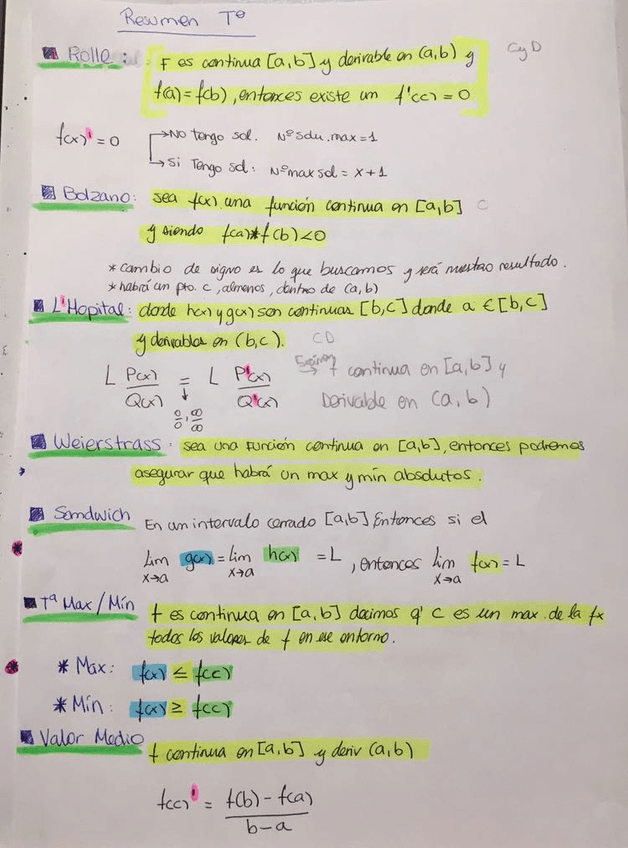 Resumen Tº
Rolle: F es continua [a,b] y derivable en (a,b) y CyD
f(a)=f(b), entonces existe un f'(c)=0
f(x)'=0 → No tengo sol. Nº solu. max=1
→ Si Tengo sol: Nº max sol = x+1
Bolzano: sea f(x) una función continua en [a,b] C
y siendo f(a)*f(b)<0
*cambio de signo es lo que buscamos y será nuestro resultado.
*habrá un pto. c, almenos, dentro de (a,b)
L'Hopital: donde h(x) y g(x) son continuas [b,c] donde a ∈ [b,c]
y derivables en (b,c). CD
L P(x)/Q(x) = L P'(x)/Q'(x) → f continua en [a,b] y
0/0, ∞/∞ Derivable en (a,b)
Weierstrass: sea una función continua en [a,b], entonces podremos
asegurar que habrá un max y mín absolutos.
Sandwich En un intervalo cerrado [a,b] Entonces si el
lim x→a g(x) = lim x→a h(x) = L, entonces lim x→a f(x) = L
Tª Max/Mín f es continua en [a,b] decimos q' c es un max. de la fx
todos los valores de f en ese entorno.
* Max: f(x) ≤ f(c)
* Mín: f(x) ≥ f(c)
Valor Medio f continua en [a,b] y deriv (a,b)
f(c)' = f(b)-f(a)
b-a